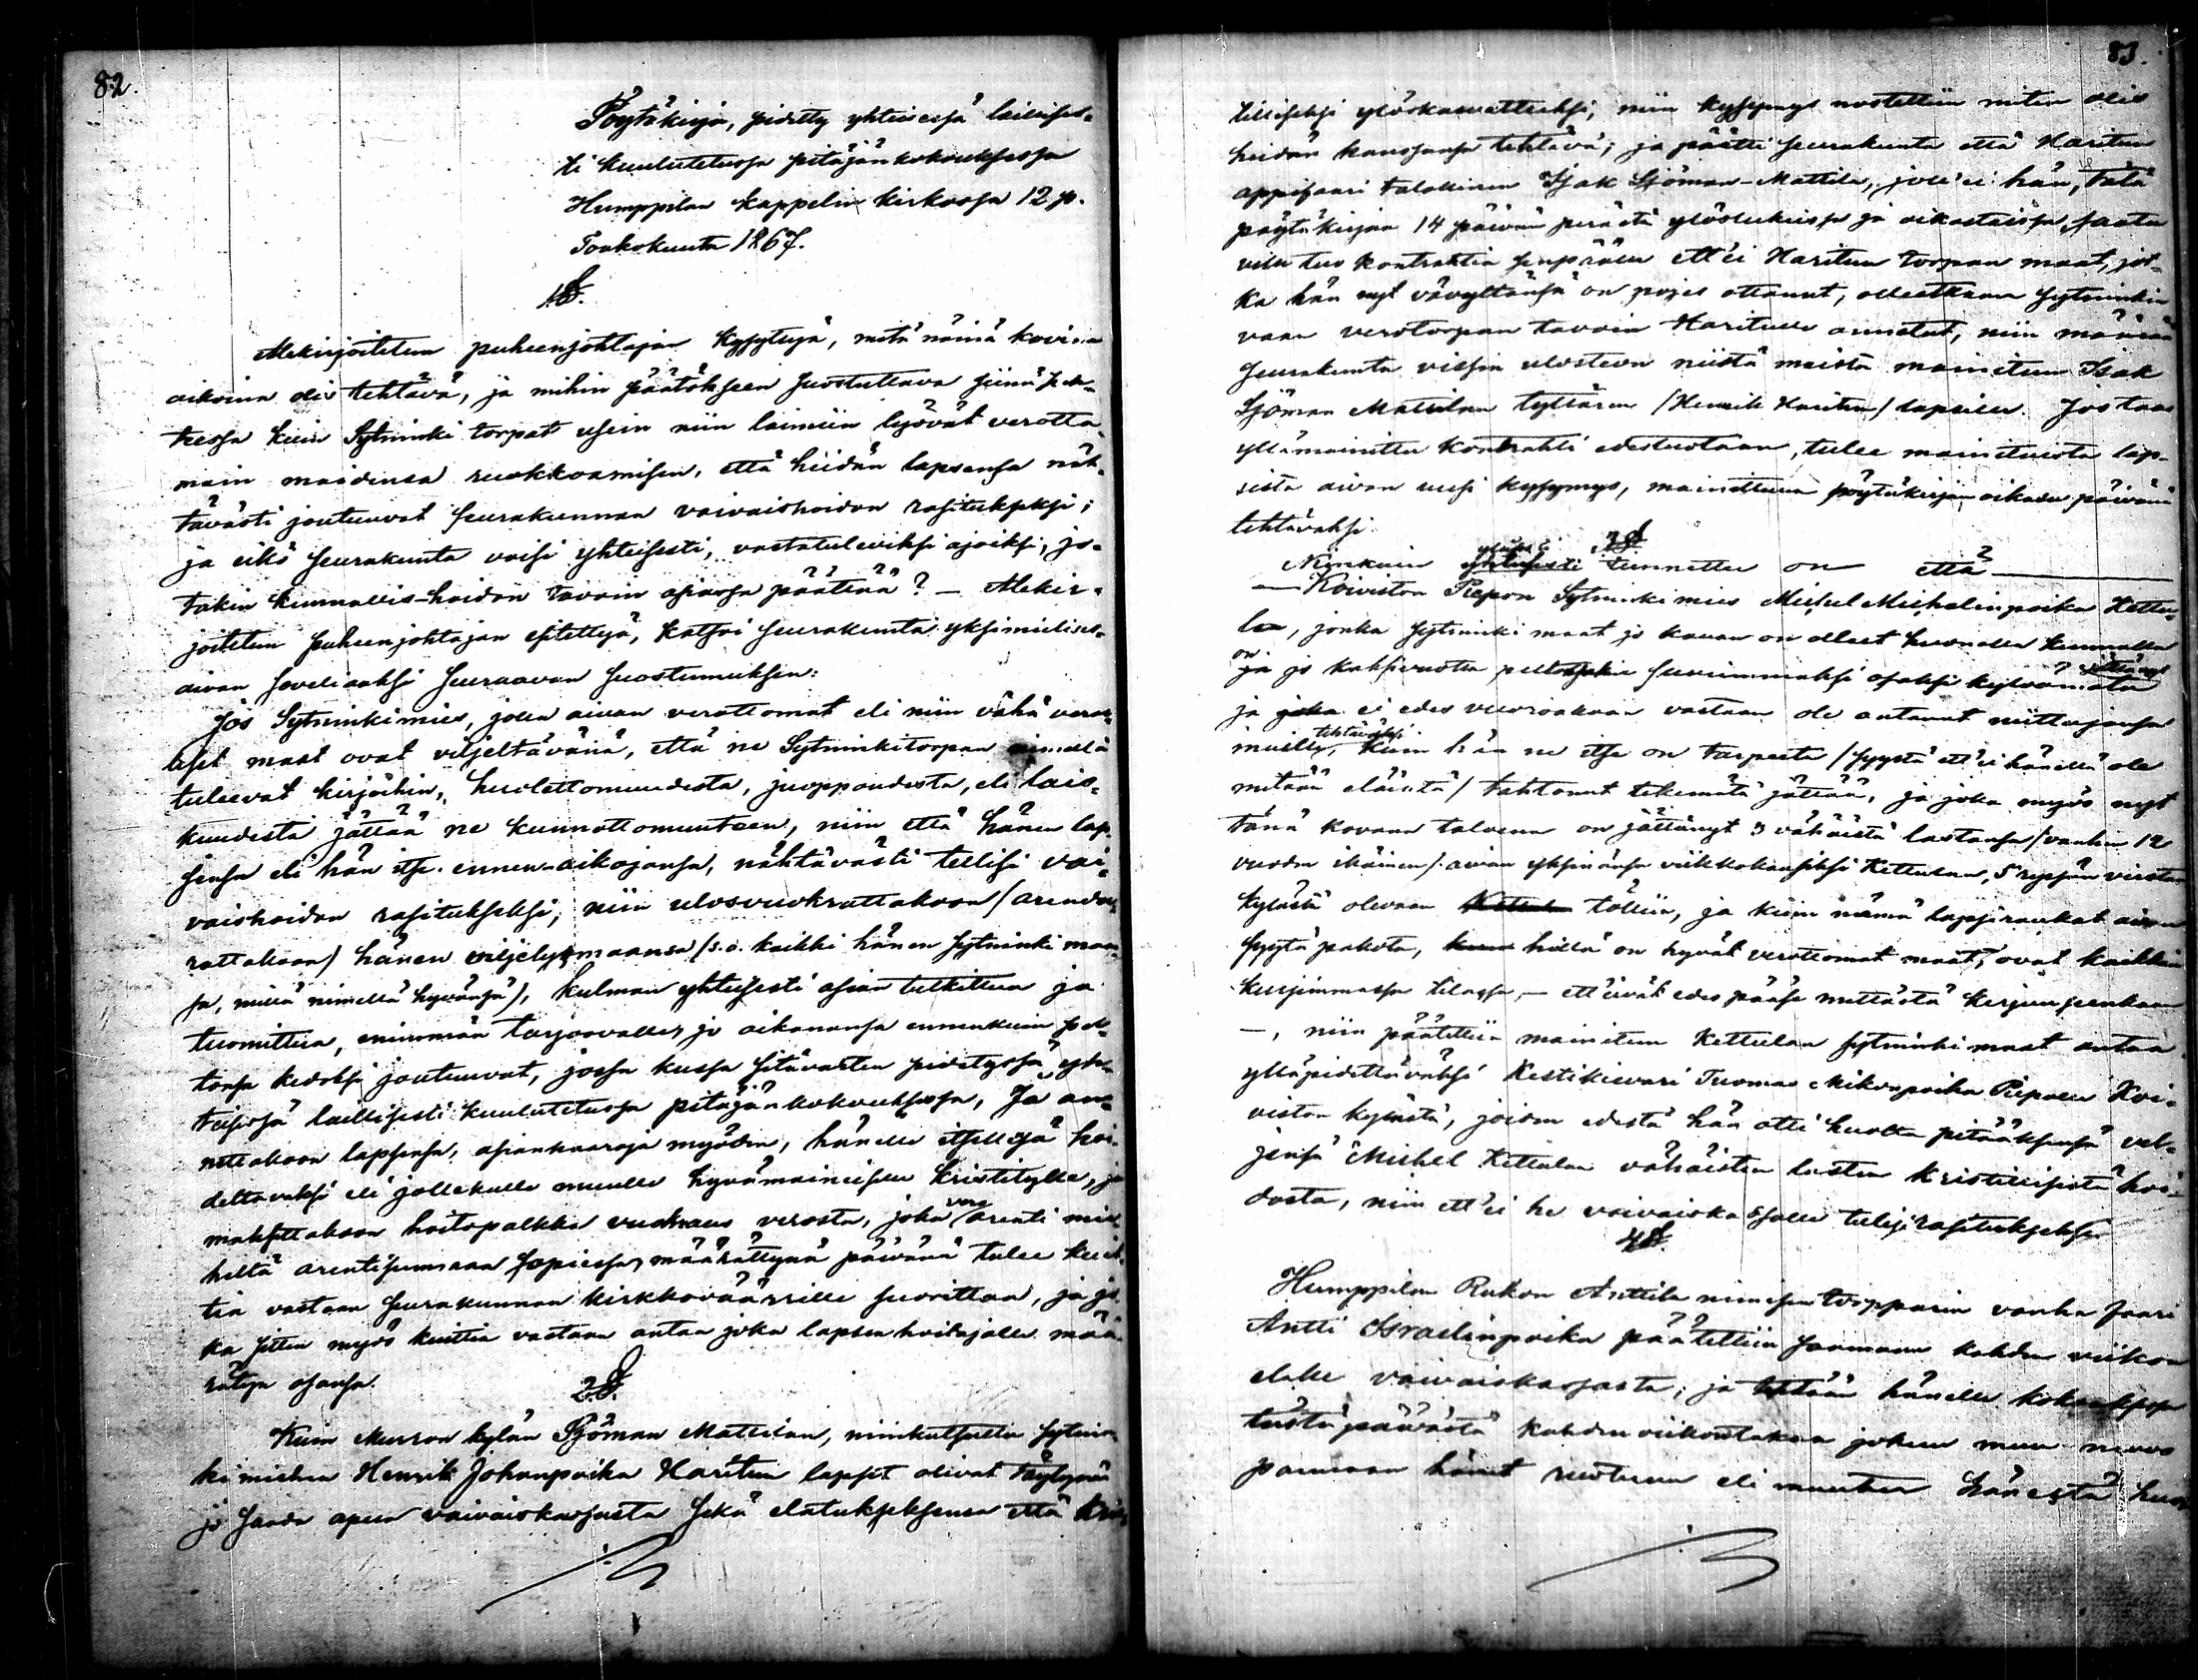 82.
Pöytäkirja, pidetty yhteisessä laillises-
ti kuulutetussa pitäjänkokouksessa
Humppilan kappelin kirkossa 12 p.
Toukokuuta 1867.
1 §.
Allekirjoitetun puheenjohtajan kysyttyä, mitä näinä kovina
aikoina olis tehtävä, ja mihin päätökseen suostuttava siinä
kuin Sytninki torpat usein niin laimiin lyövät verotto-
main maidensa ruokkoamisen, että heidän lapsensa näh-
tävästi joutuuvat seurakunnan vaivaishoidon rasitukseksi;
ja eikö seurakunta voisi yhteisesti, vastatuleviksi ajoiksi, jo-
takin kunnallis-hoidon tavoin asiassa päättää? — Allekir-
joitetun puheenjohtajan esitettyä, katsoi seurakunta yksimielises-
aivan soveliaaksi seuraavan suostumuksen:
Jos Sytninkimies, jolla aivan verottomat eli niin vähä veroa-
liset maat ovat viljeltävänä, että ne Sytninkitorpan nimellä
tuleevat kirjoihin, huolettomuudesta, juoppoudesta, eli lais-
kuudesta jättää ne kunnottomuuteen, niin että hänen lap-
sensa eli hän itse ennen-aikojansa, nähtävästi tullisi vai-
vaishoidon rasitukseksi, niin ulosvuokrattakoon (arenda-
rattakoon) hänen viljelysmaansa (s.o. kaikki hänen sytninki maan-
sa, millä nimellä hyvänsä), kulman yhteisesti asian tutkittua ja
tuomittua, enimmän tarjoovalle, jo aikanansa ennenkuin
kedoksi joutuuvat, jossa kussa sitävarten pidetyssä yh-
teisessä laillisesti kuulutetussa pitäjänkokouksessa, Ja an-
nettakoon lapsensa, asianhaaroja myöden, hänelle itsellesä hoi-
dettavaksi eli jollekulle muulle hyvämaineiselle kristitylle, ja
maksettakoon hoitopalkka vuokraus verosta, joka arenti mie-
heltä arentisumman sopiessa, määrättynä päivänä tulee kuit-
tia vastaan seurakunnan kirkkoväärtille suorittaa, ja jo-
ka sitten myös kuittia vastaan antaa joka lapsenhoitajalle mää-
rätyn osansa.
2 §.
Kuin Murron kylän Sjöman Mattilan, niinkutsutta sytnin-
ki miehen Henrik Johanpoika Haritun lapset olivat
jo saada apua vaivaiskassasta sekä elatukseksensa että kris-
83.
tilliseksi ylöskasvatteeksi; niin kysymys nostettiin miten olis
heidän kanssansa tehtävä; ja päätti seurakunta että Haritun
appisaari talokinen Isak Sjöman-Mattila, joll'ei hän, tätä
pöytäkirjaa 14 päivän perästä ylöslukeissa ja oikastaissa, saata
kontrahtia ett'ei Haritun torpan maat, jot-
ka hän nyt vävyltänsä on pojes ottanut, olleetkaan sytninkin
vaan verotorpan tavoin Haritulle annetut, niin määrää
seurakunta vissin ulosteon niistä maista mainitun Isak
Sjöman Mattilan tyttären (Henrik Haritun) lapsille. Jos taas
yllämainittu kontrahti edestuotaan, tulee mainituista lap-
sista aivan uusi kysymys, mainittuna pöytäkirjan oikasu päivänä
tehtäväksi.
3 §
Niinkuin yleisesti tunnettu on että
Koiviston Piepon Sytninkimies Michel Michelinpoika Kettu-
la, jonka sytninki maat jo kauan on olleet huonolla kunnolla
on jo kaksivuotta suurimmaksi osaksi kylvämätä
ja ei edes vuoroakaan vastaan ole antanut niittujansa
muille tehtäväksi, kuin hän ne itse on tarpeeta (syystä ett'ei hänellä ole
mitään eläintä) tahtonut tekemätä jättää, ja joka myös nyt
tänä kovana talvena on jättänyt 3 vähäistä lastansa (vanhin 12
vuoden ikäinen) aivan yksinänsä viikkokausiksi Kettulaan, 5 virstan
kylästä olevaan tölliin, ja kuin nämä lapsiraukat aivan
syytä pakota, heillä on hyvät verottomat maat, ovat kaikkein
kurjimmassa tilassa, — ett'eivät edes pääse mettästä kerjuuseenkaan
—, niin päätettiin mainitun Kettulan sytninki maat antaa
ylläpidettäväksi Kestikievari Tuomas Mikonpoika Piepolle Koi-
viston kylästä, joiden edestä hän otti huolta pitääksensä vel-
jensä Michel Kettulan vähäisten lasten kristillisestä hoi-
dosta, niin ett'ei he vaivaiskassalle tulisi rasitukseksi.
4 §.
Humppilan Rukon Anttila nimisen torpparin vanha faari
Antti Israelinpoika päätettiin saamaan kahden viikon
elake vaivaiskassasta; ja tehtään hänelle
tästä päivästä kahden viikontakaa johon muu neuvo
parmaan hänet ruotuun eli muuten hänestä huol-